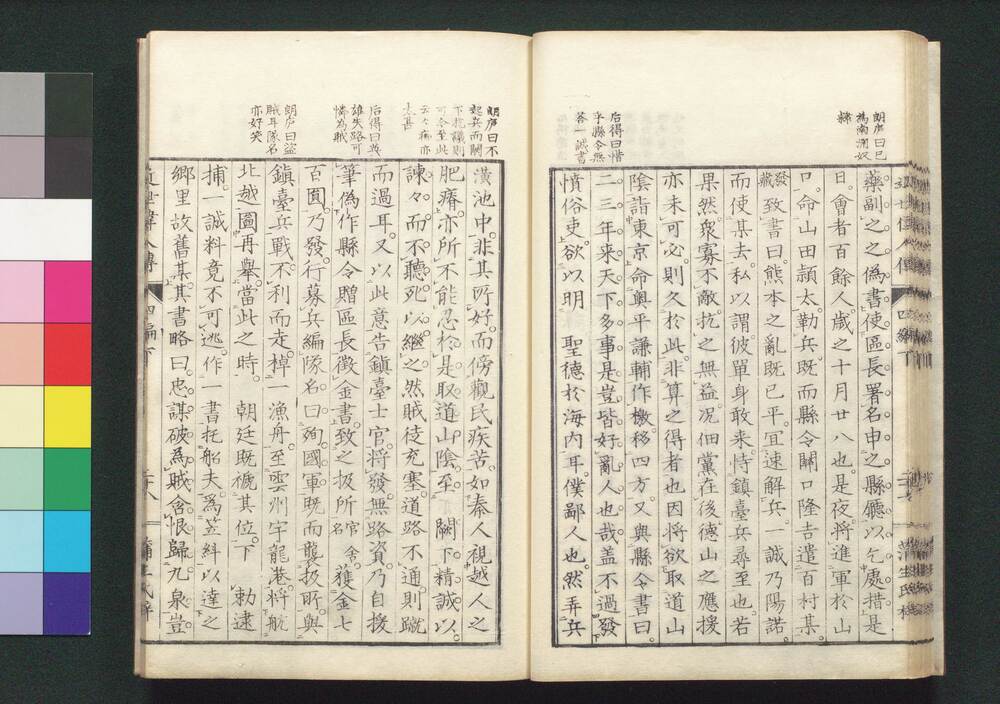 朗庐曰已
為南洲奴
隸
薬副之之偽書使區長署名申之縣廳以乞處措是
日會者百餘人歲之十月廿八也是夜將進軍於山
口命山田頴太勒兵既而縣令關口隆吉遣百村某
發藏致書曰熊本之亂既已平冝速解兵一誠乃陽諾
而使某去私以謂彼單身敢来恃鎮臺兵尋至也若
果然衆寡不敵抗之無益况佃黨在後德山之應援
亦未可必則久於此非算之得者也因將欲取道山
陰詣東京命奥平謙輔作檄移四方又與縣令書曰
二三年来天下多事是豈皆好亂人也哉盖不過發
憤俗吏欲以明　聖德於海内耳僕鄙人也然弄兵
后得曰惜
乎縣令無
答一誠書
朗庐曰不
起兵而闕
下抗議則
可今至此
云々痛亦
太甚
潢池中非其所好而傍觀民疾苦如秦人視越人之
肥瘠亦所不能忍於是取道山陰至　闕下精誠以
諫々而不聽死以繼之然賊徒充塞道路不通則蹴
而過耳又以此意告鎮臺士官將發無路資乃自援
筆偽作縣令贈區長徵金書致之扱所官舍名獲金七
百圓乃發行募兵編隊名曰殉國軍既而襲扱所與
鎮臺兵戰不利而走棹一漁舟至雲州宇龍港將航
北越圖再舉當此之時　朝廷既褫其位下　勅逮
捕一誠料竟不可逃作一書托船夫為笠紏以達之
鄉里故舊某其書略曰忠謀破為賊含恨歸九泉豈
后得曰英
雄失路可
憐為賊
朗庐曰盜
賊耳隊名
亦好笑